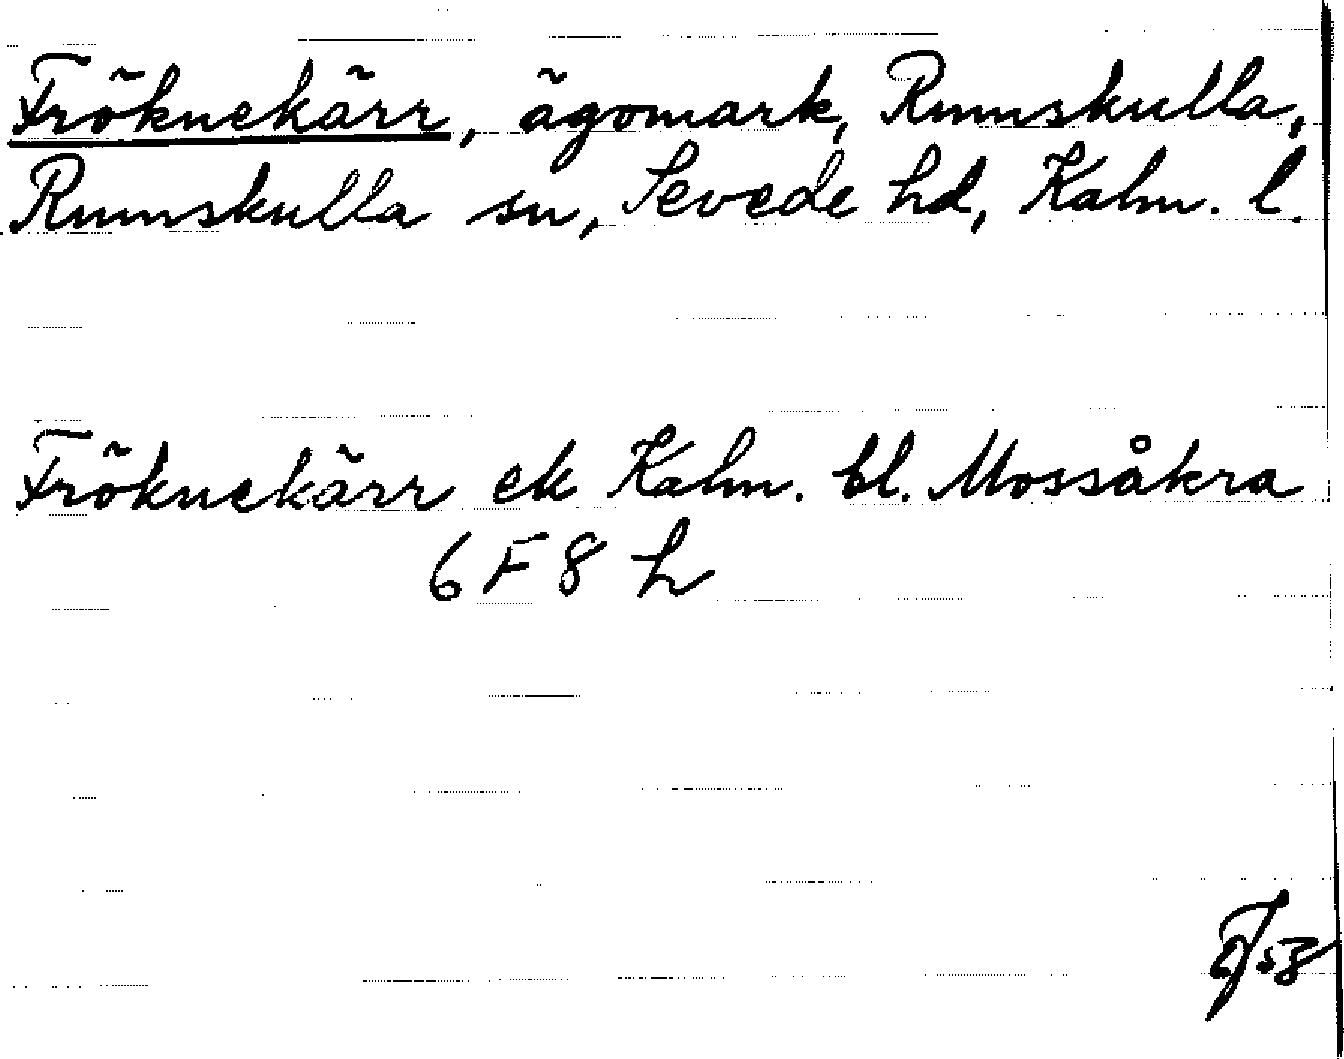 Fröknekärr, ägomark, Rumskulla,
Rumskulla sn, Sevede hd, Kalm. l.
Fröknekärr ek Kalm. bl. Mossåkra
6 F 8 h
58